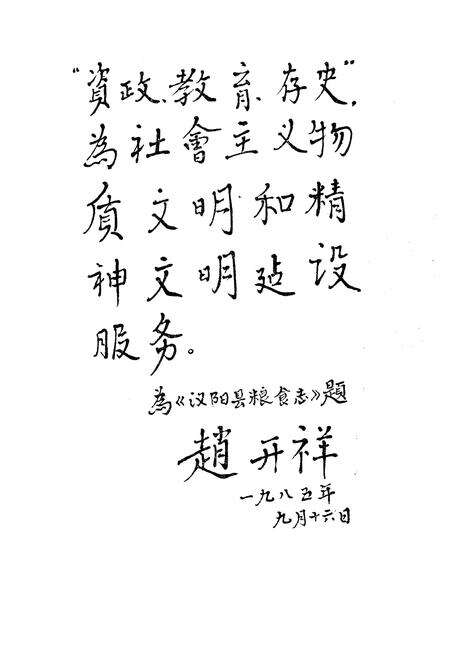 “資政、教育、存史”，
為社會主义物
质文明和精
神文明建设
服务。
為《汉阳县粮食志》題
趙开祥
一九八五年
九月十六日